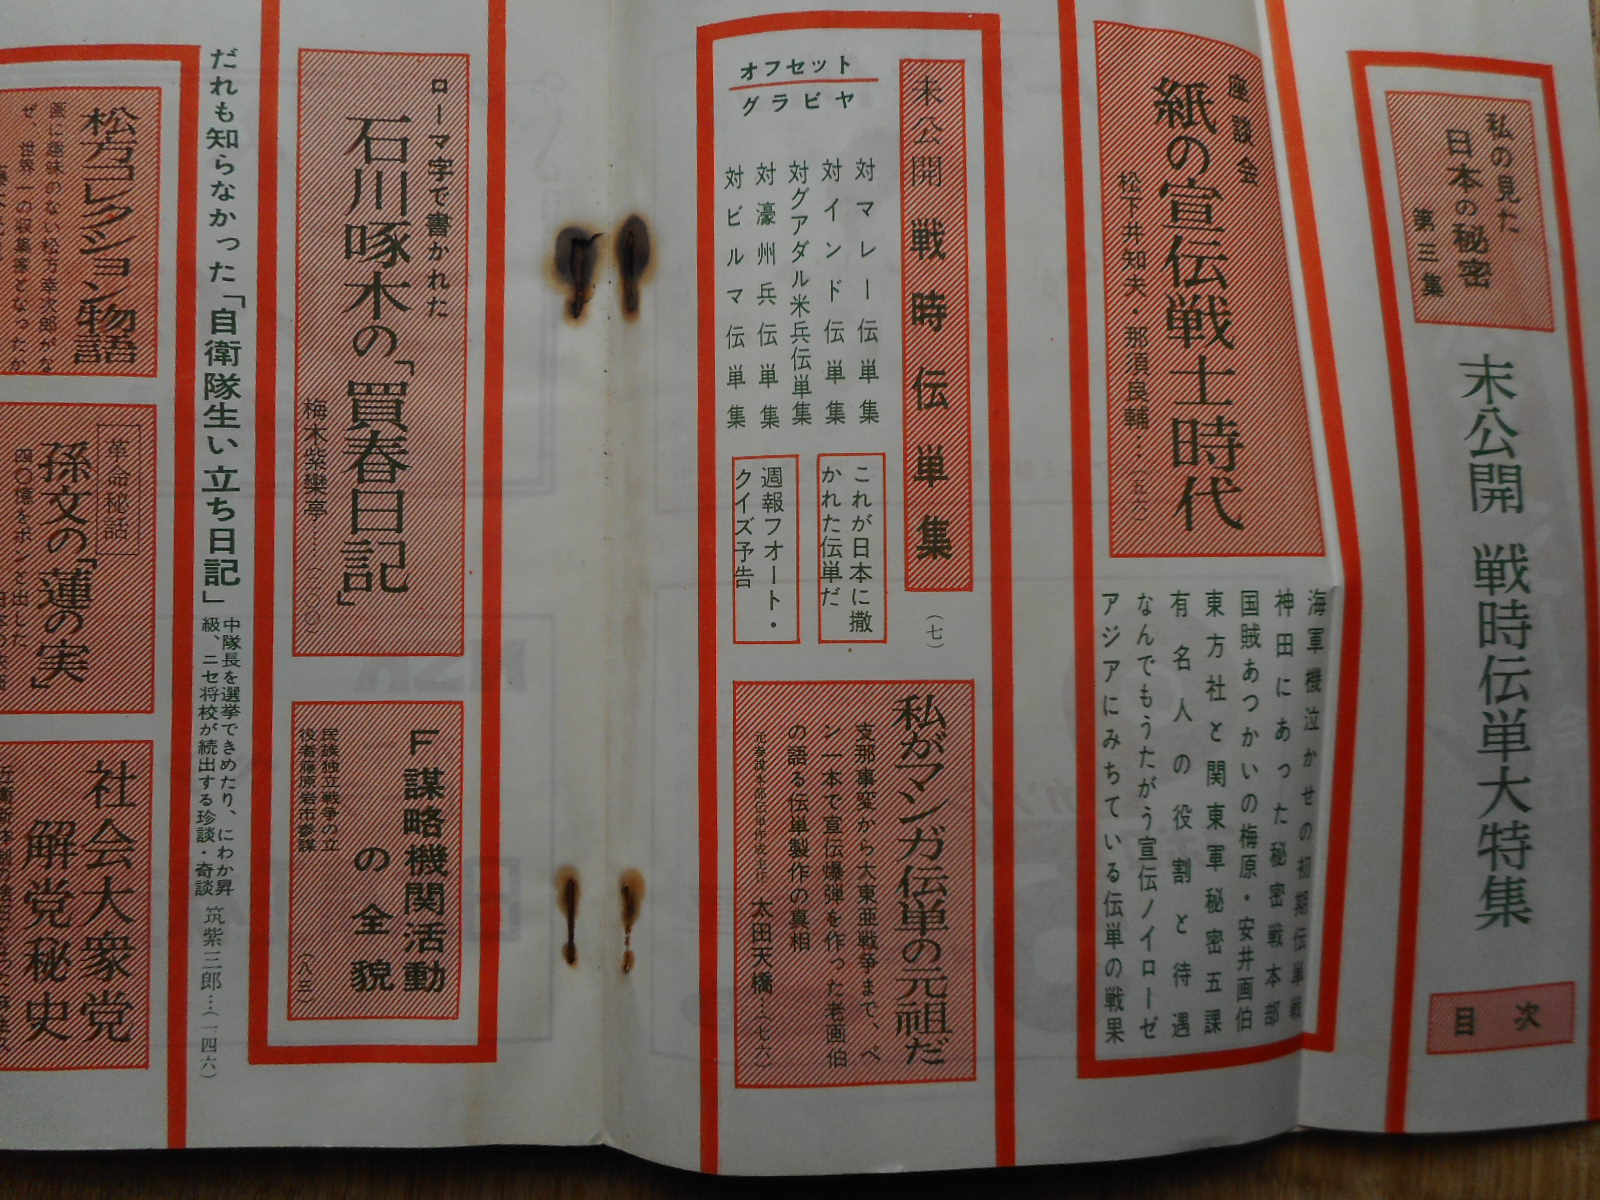 私の見た
日本の秘密
第三集
未公開 戦時伝単大特集
目次
座談会
紙の宣伝戦士時代
松下井知夫・那須良輔…(五六)
海軍機泣かせの初期伝単戦
神田にあった秘密戦本部
国賊あつかいの梅原・安井画伯
東方社と関東軍秘密五課
有名人の役割と待遇
なんでもうたがう宣伝ノイローゼ
アジアにみちている伝単の戦果
未公開 戦時伝単集
(七)
オフセット
グラビヤ
対マレー伝単集
対インド伝単集
対グアダル米兵伝単集
対濠州兵伝単集
対ビルマ伝単集
これが日本に撒
かれた伝単だ
週報フオート・
クイズ予告
私がマンガ伝単の元祖だ
支那事変から大東亜戦争まで、ペ
ン一本で宣伝爆弾を作った老画伯
の語る伝単製作の真相
太田天橋…(七六)
ローマ字で書かれた
石川啄木の「買春日記」
梅木紫欒亭……
F謀略機関活動
の全貌
民族独立戦争の立
役者藤原岩市参謀
(八三)
だれも知らなかった「自衛隊生い立ち日記」
中隊長を選挙できめたり、にわか昇
級、ニセ将校が続出する珍談・奇談
筑紫三郎…(一四六)
松方コレクション物語
画に趣味のない松方幸次郎がな
ぜ、世界一の収集家となったか
革命秘話
孫文の「蓮の実」
四〇億をポンと出した
社会大衆党
解党秘史